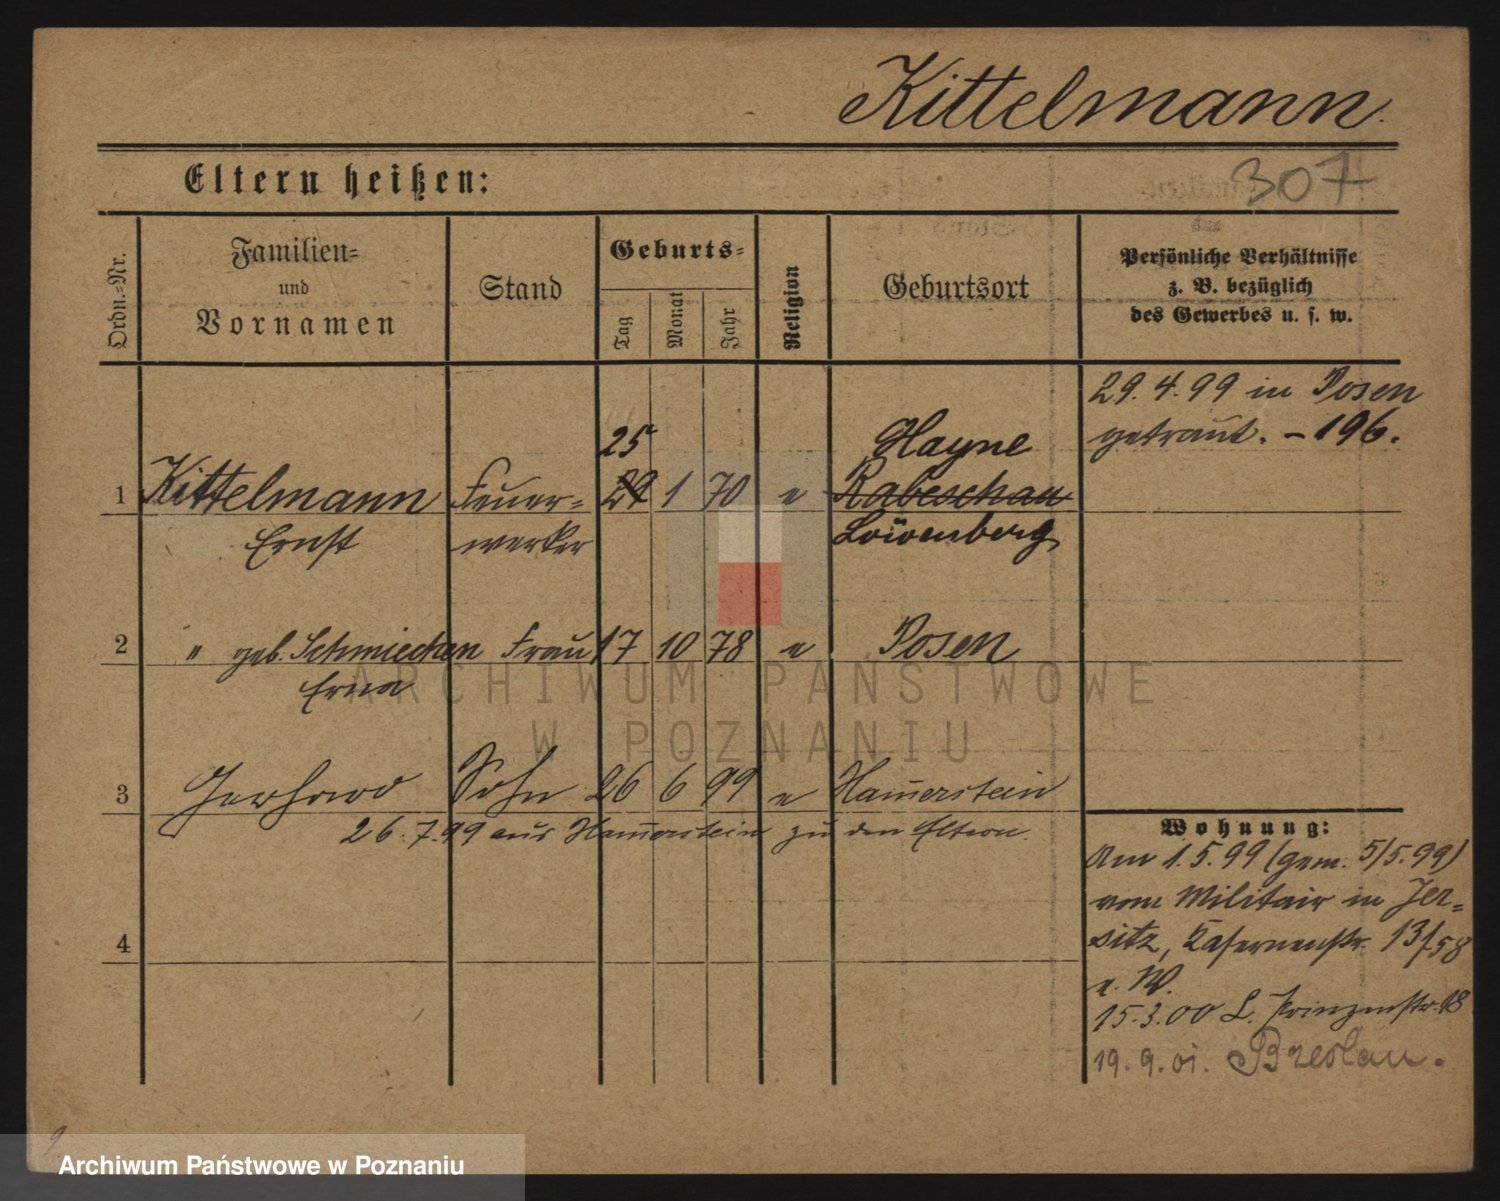 Kittelmann.
Eltern heißen:
307
Ordn.-Nr.
Familien-
und
Vornamen
Stand
Geburts-
Tag
Monat
Jahr
Religion
Geburtsort
Persönliche Verhältnisse
z. B. bezüglich
des Gewerbes u. s. w.
29. 4. 99 in Posen
getraut. - 196.
25 Hayne
1 Kittelmann Feuer- 29 1 70 e Rabeschau
Ernst werker Löwenberg
2 " geb. Schmiechen Frau 17 10 78 e Posen
Erna
3 Gerhard Sohn 26 6 99 e Hamerstein
26. 7. 99 aus Hamerstein zu den Eltern.
4
Wohnung:
Am 1. 5. 99 (gem. 5/5. 99)
vom Militair in Jer-
sitz, Kasernenstr. 13/58
e. W.
15. 3. 00 L. Prinzenstr. 18
19. 9. 01. Breslau.
ARCHIWUM PAŃSTWOWE
W POZNANIU
9
Archiwum Państwowe w Poznaniu